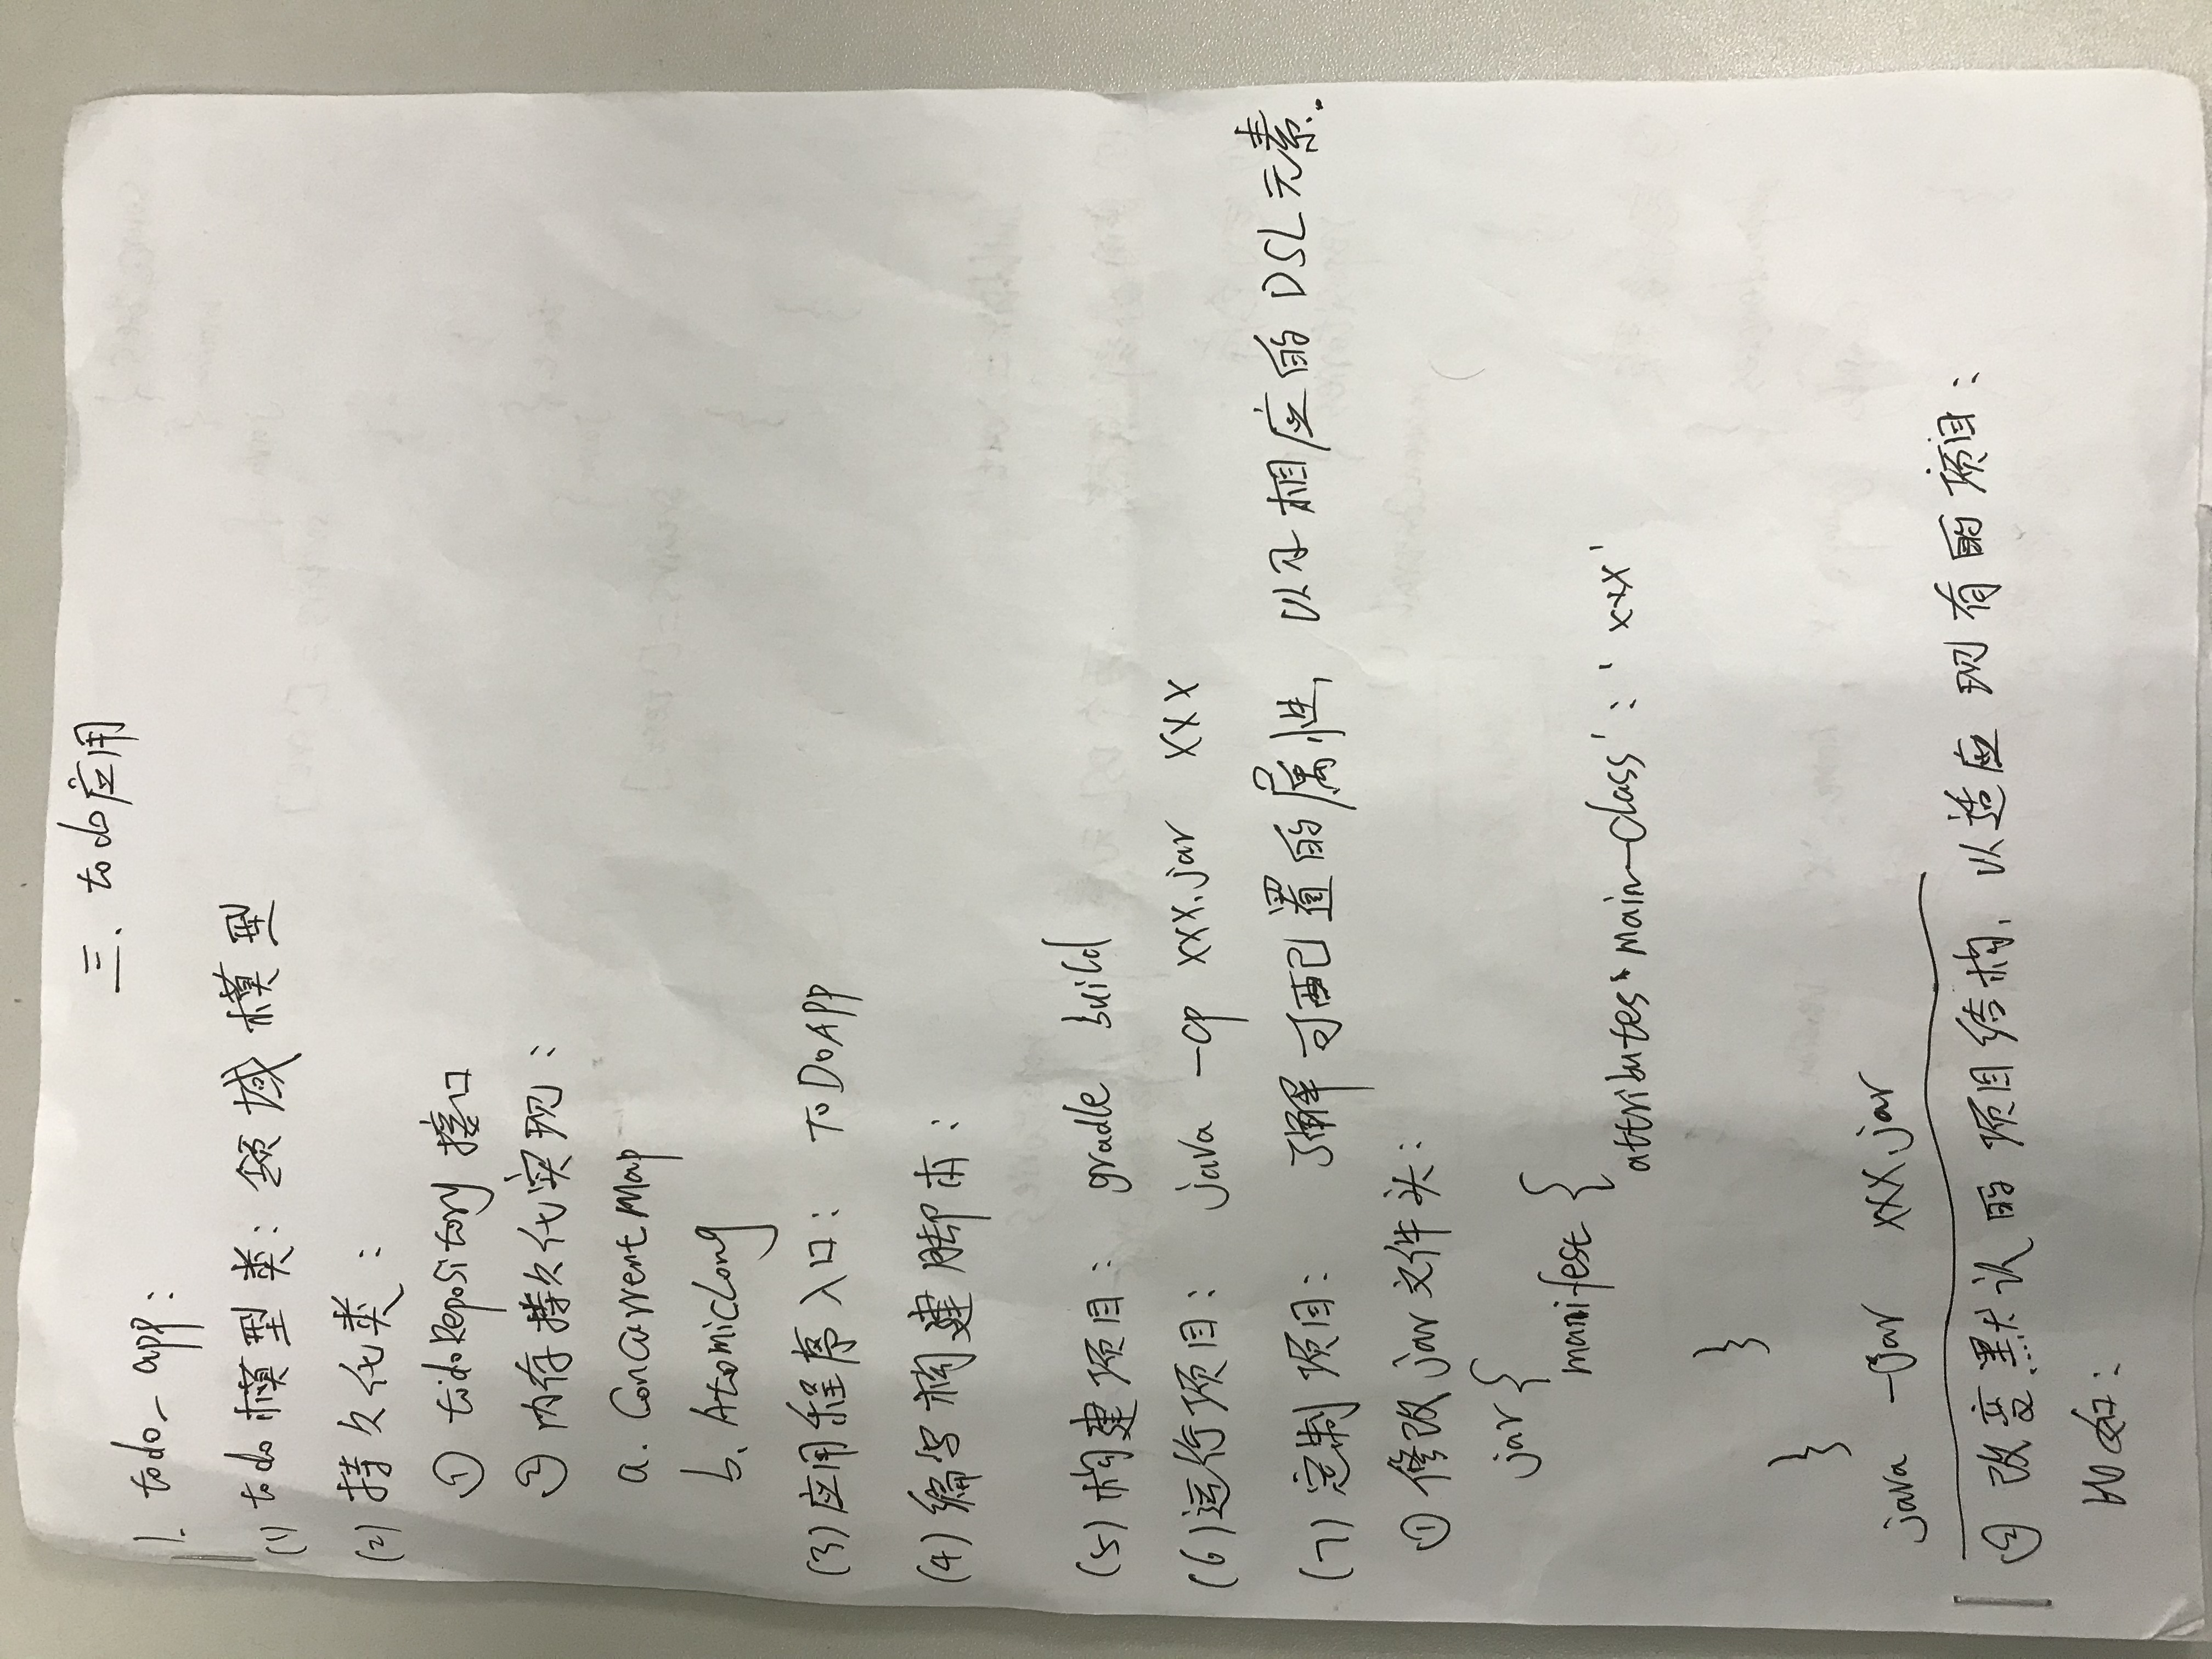 三、todo应用
1. todo_app:
(1) todo模型类：领域模型
(2) 持久化类：
① tidoRepository 接口
② 内存持久化实现：
a. ConcurrentMap
b. AtomicLong
(3) 应用程序入口： ToDoAPP
(4) 编写构建脚本：
(5) 构建项目： gradle build
(6) 运行项目： java -cp xxx.jar xxx
(7) 定制项目： 了解可配置的属性，以及相应的DSL元素.
① 修改jar文件头：
jar {
manifest {
attributes 'main-class' : 'xxx'
}
}
java -jar xxx.jar
② 改变默认的项目结构，以适应现有的项目：
比如：